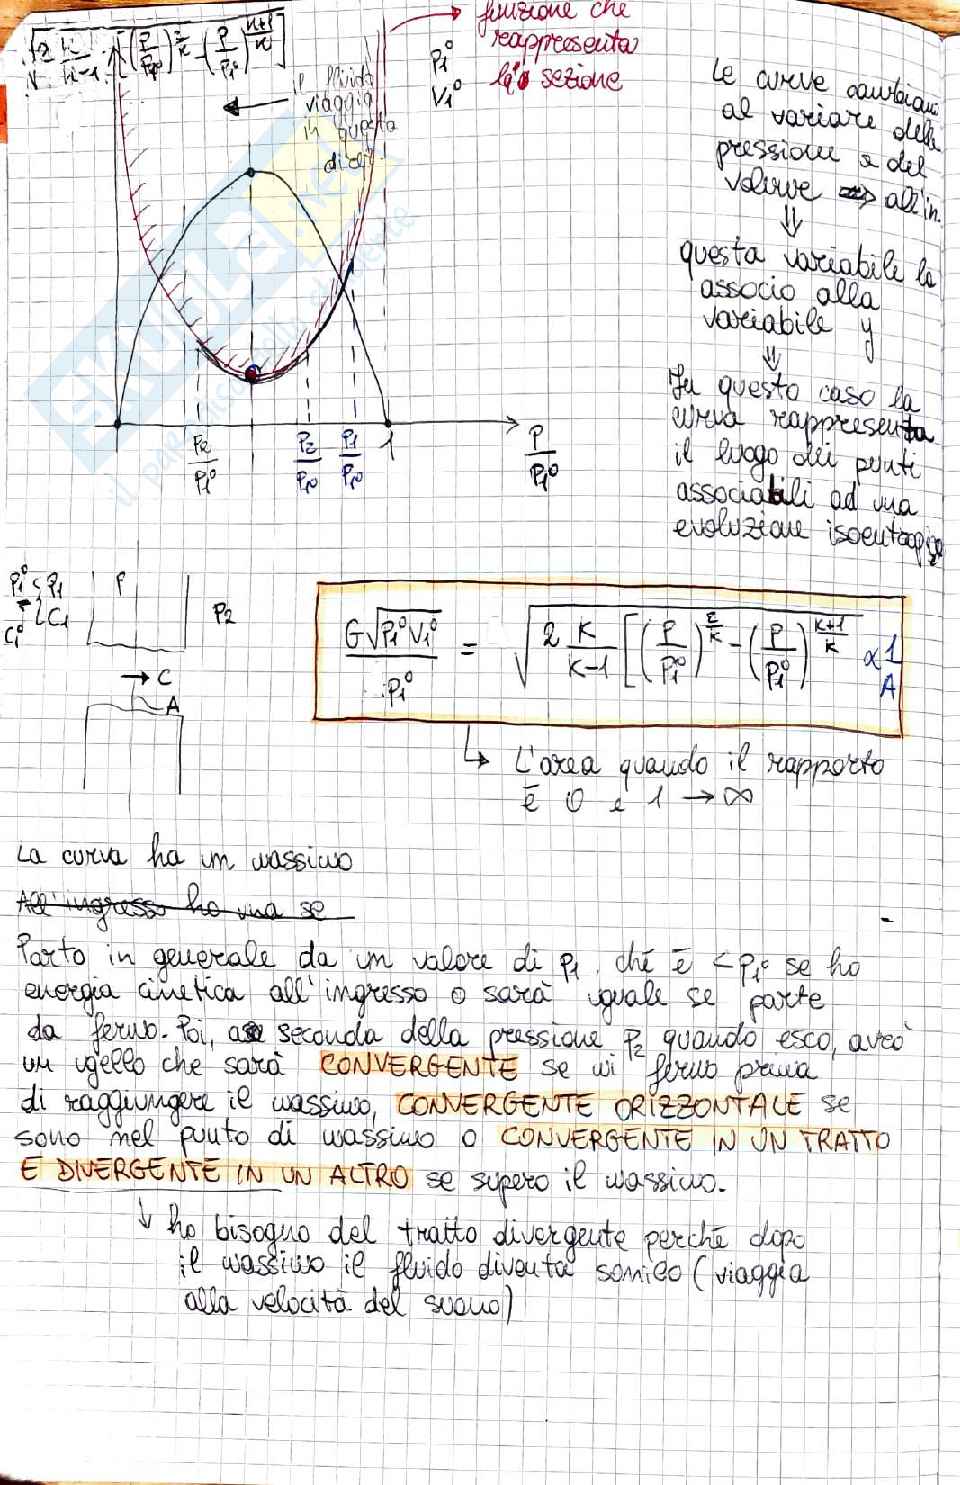 √2 K/(K-1) [(P/P₁⁰)^(2/K) - (P/P₁⁰)^((K+1)/K)]
funzione che
rappresenta
la sezione
P₁⁰
V₁⁰
il fluido
viaggia
in questa
direz
Le curve cambiano
al variare della
pressione e del
volume ⇒ all'in.
⇓
questa variabile la
associo alla
variabile y
⇓
In questo caso la
curva rappresenta
il luogo dei punti
associabili ad una
evoluzione isoentropica
P₂/P₁⁰ P₂/P₁⁰ P₁/P₁⁰ 1 P/P₁⁰
P₁⁰ < P₁
C₁⁰ C₁
P
P₂
→ C
A
G√(P₁⁰V₁⁰)/P₁⁰ = √(2 K/(K-1) [(P/P₁⁰)^(2/K) - (P/P₁⁰)^((K+1)/K)]) ∝ 1/A
↳ L'area quando il rapporto
è 0 e 1 → ∞
La curva ha un massimo
All'ingresso ho una se
Parto in generale da un valore di P₁ ché è < P₁⁰ se ho
energia cinetica all'ingresso o sarà uguale se parte
da fermo. Poi, a seconda della pressione P₂ quando esco, avrò
un ugello che sarà CONVERGENTE se mi fermo prima
di raggiungere il massimo, CONVERGENTE ORIZZONTALE se
sono nel punto di massimo o CONVERGENTE IN UN TRATTO
E DIVERGENTE IN UN ALTRO se supero il massimo.
↓ ho bisogno del tratto divergente perché dopo
il massimo il fluido diventa sonico (viaggia
alla velocità del suono)
SKUOLA.net